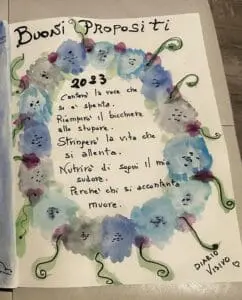 BUONI PROPOSITI
2023
Canterò la voce che
si è spenta.
Riempirò il bicchiere
allo stupore.
Stringerò la vita che
si allenta.
Nutrirò di sogni il mio
sudore.
Perché chi si accontenta
muore.
DIARIO
VISIVO